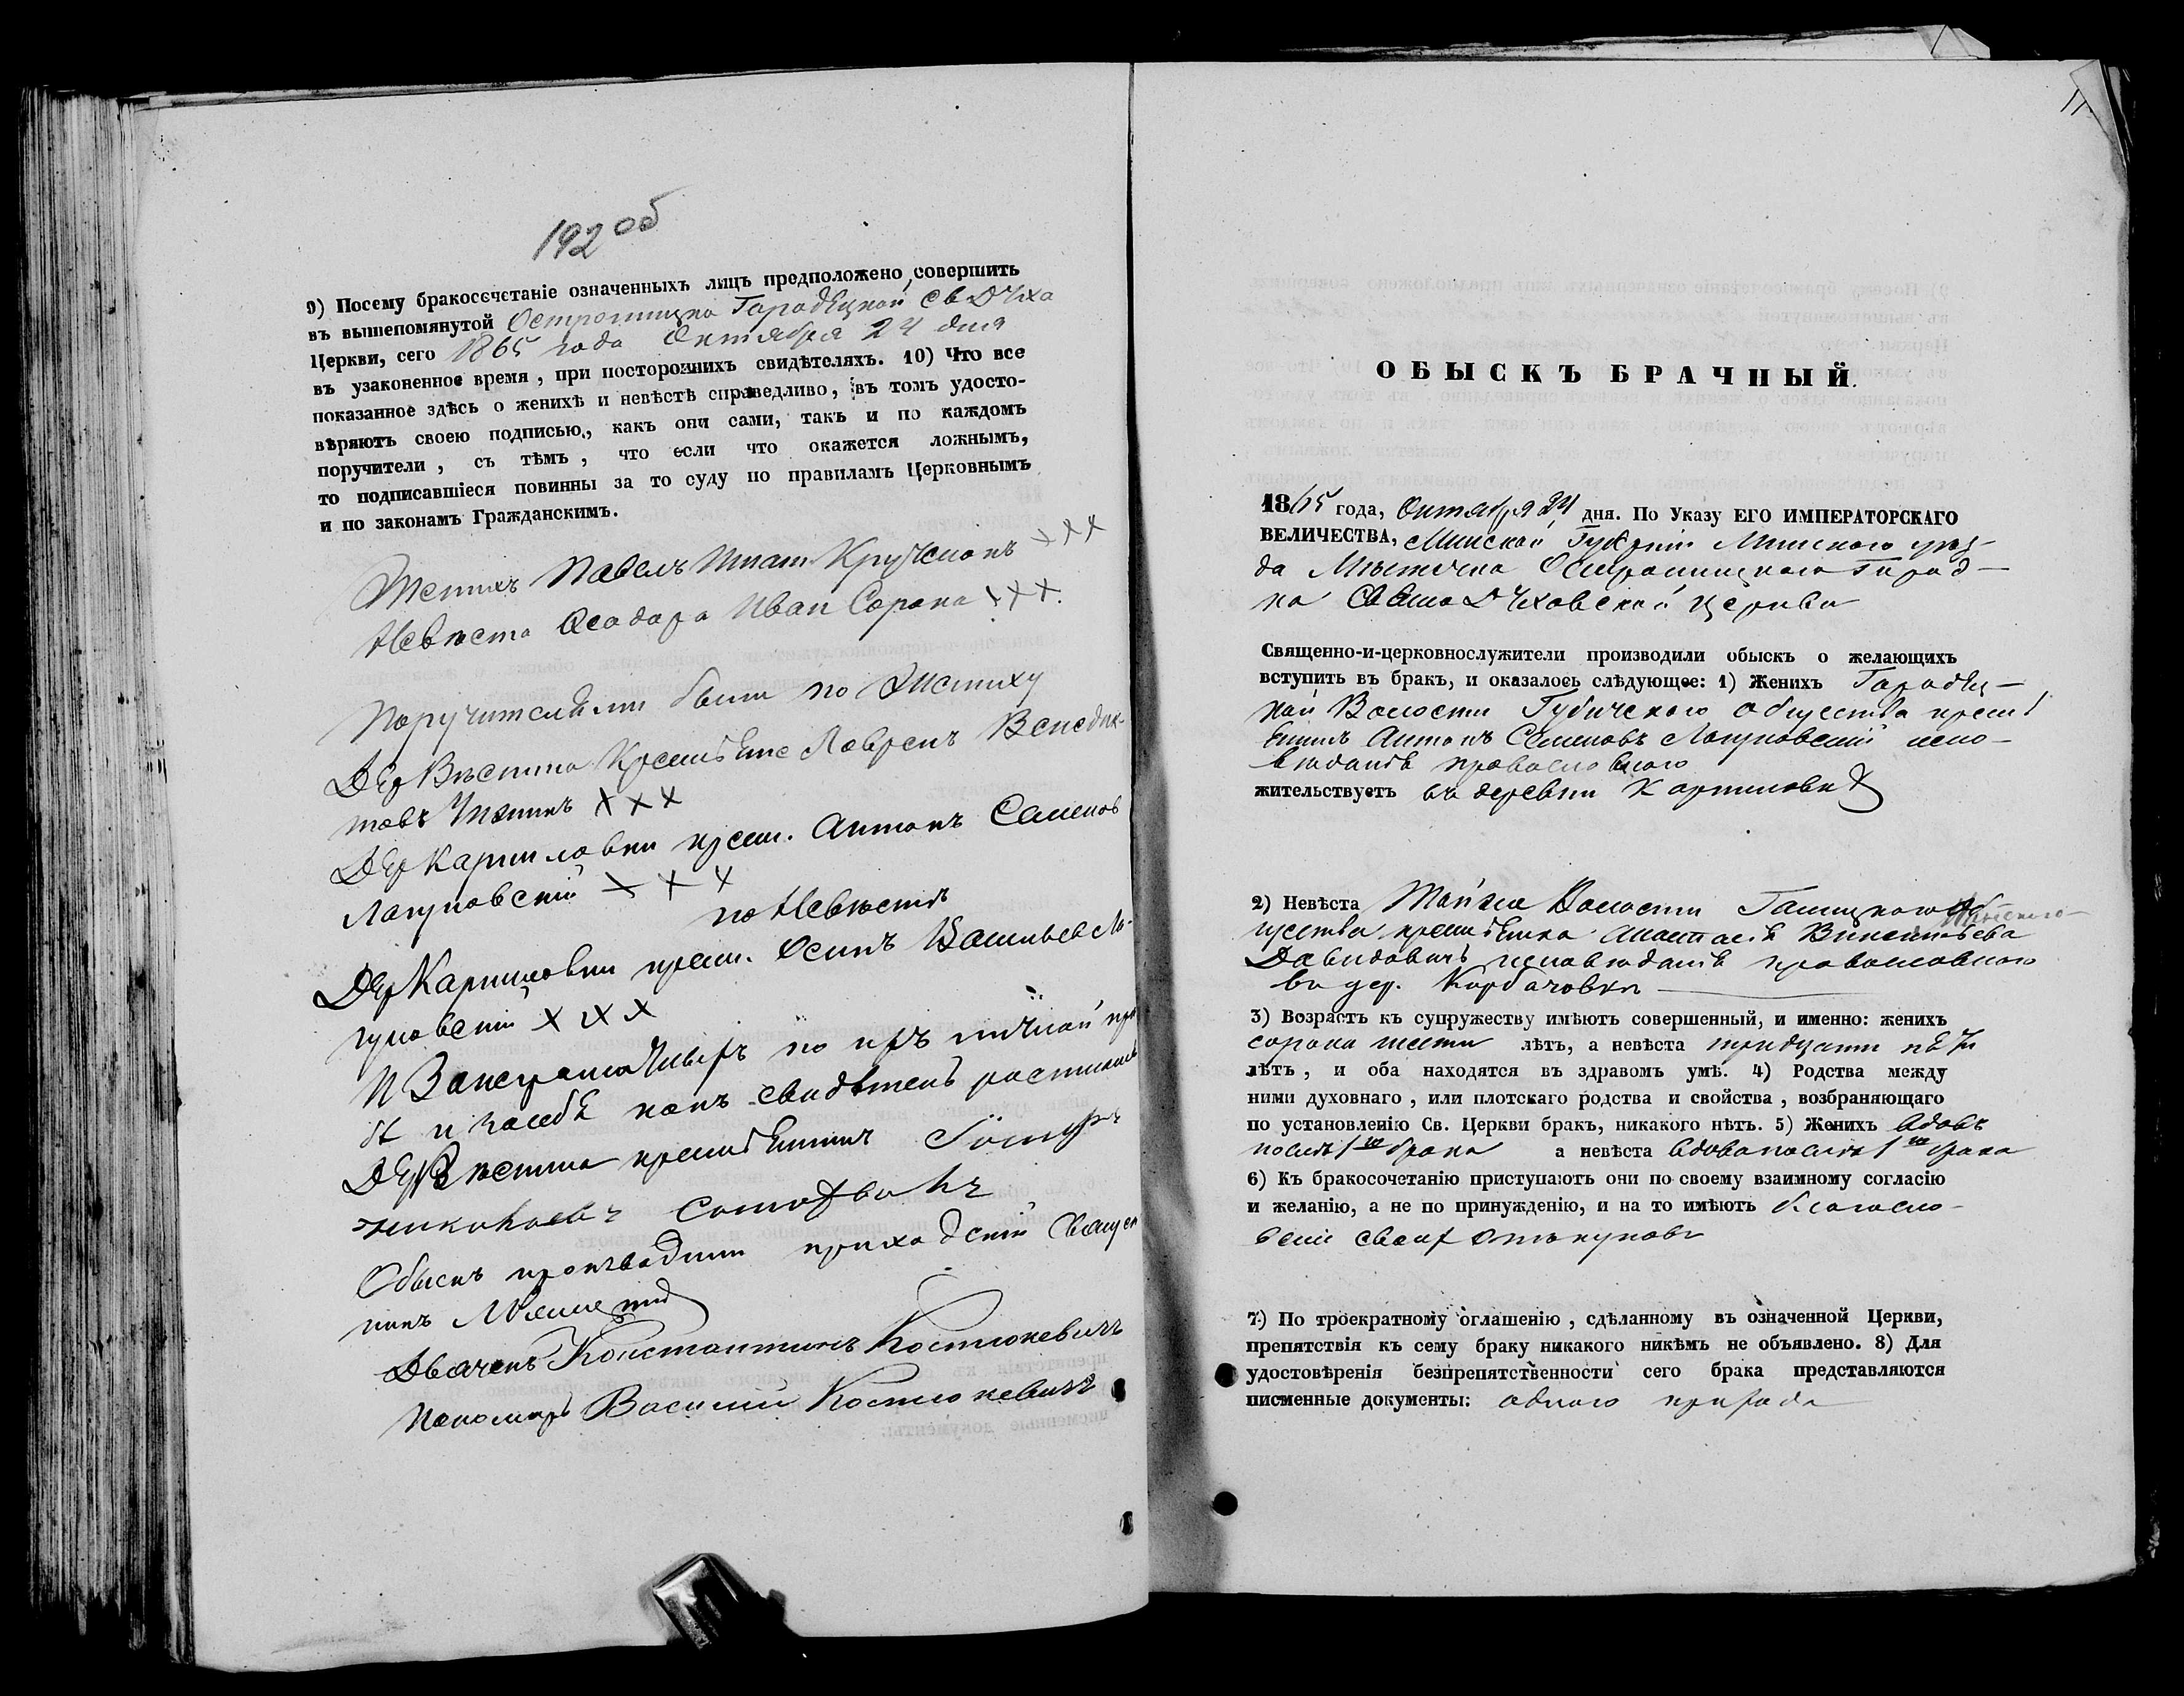 192 об
9) Посему бракосочетаніе означенныхъ лицъ предположено совершить
въ вышепомянутой Острошицко Городецкой св Духа
Церкви, сего 1865 года Октября 24 дня
въ узаконенное время, при постороннихъ свидѣтеляхъ. 10) Что все
показанное здѣсь о женихѣ и невѣстѣ справедливо, въ томъ удосто-
вѣряютъ своею подписью, какъ они сами, такъ и по каждомъ
поручители, съ тѣмъ, что если что окажется ложнымъ,
то подписавшіеся повинны за то суду по правиламъ Церковнымъ
и по законамъ Гражданскимъ.
Женихъ Павелъ Игнат. xxx
Невѣста Ѳеодора Иван Сорока xxx.
Поручителями были по Жениху
Дер Вѣстина Лаврен Венедик-
товъ xxx
Дер Картиловки крест. Антонъ Семенов
Лапуковскій x x x
по Невѣстѣ
Дер Картиловки крест. Осипъ Васильев Ла-
пуковскій x x x
по ихъ личной
и за себя какъ свидѣтель
Дер Вѣстина
Обыскъ производили приходскій Свящ
никъ
Дьячекъ Константинъ Костюкевичъ
Пономарь Василій Костюкевичъ
ОБЫСКЪ БРАЧНЫЙ.
1865 года, Октября 24 дня. По Указу ЕГО ИМПЕРАТОРСКАГО
ВЕЛИЧЕСТВА, Минской Губерніи Минского уѣз-
да Мѣстечка Острошицкаго Город-
ка Свято Духовской церкви
Священно-и-церковнослужители производили обыскъ о желающихъ
вступить въ бракъ, и оказалось слѣдующее: 1) Женихъ Городец-
кой Волости Губичского общества крест
Антонъ Семеновъ Лапуковскій испо-
вѣданія православного
жительствуетъ въ деревни Картиловки
2) Невѣста Волости
Анастасія Викентьева
Давидовичъ исповѣданія православного
въ дер. Карбачовки
3) Возрастъ къ супружеству имѣютъ совершенный, и именно: женихъ
сорока шести лѣтъ, а невѣста тридцати пяти
лѣтъ, и оба находятся въ здравомъ умѣ. 4) Родства между
ними духовнаго, или плотскаго родства и свойства, возбраняющаго
по установленію Св. Церкви бракъ, никакого нѣтъ. 5) Женихъ вдовъ
послѣ 1го брака а невѣста вдова послѣ 1го брака
6) Къ бракосочетанію приступаютъ они по своему взаимному согласію
и желанію, а не по принужденію, и на то имѣютъ благосло-
веніе своих опекуновъ
7) По троекратному оглашенію, сдѣланному въ означенной Церкви,
препятствія къ сему браку никакого никѣмъ не объявлено. 8) Для
удостовѣренія безпрепятственности сего брака представляются
писменные документы: одного прихода